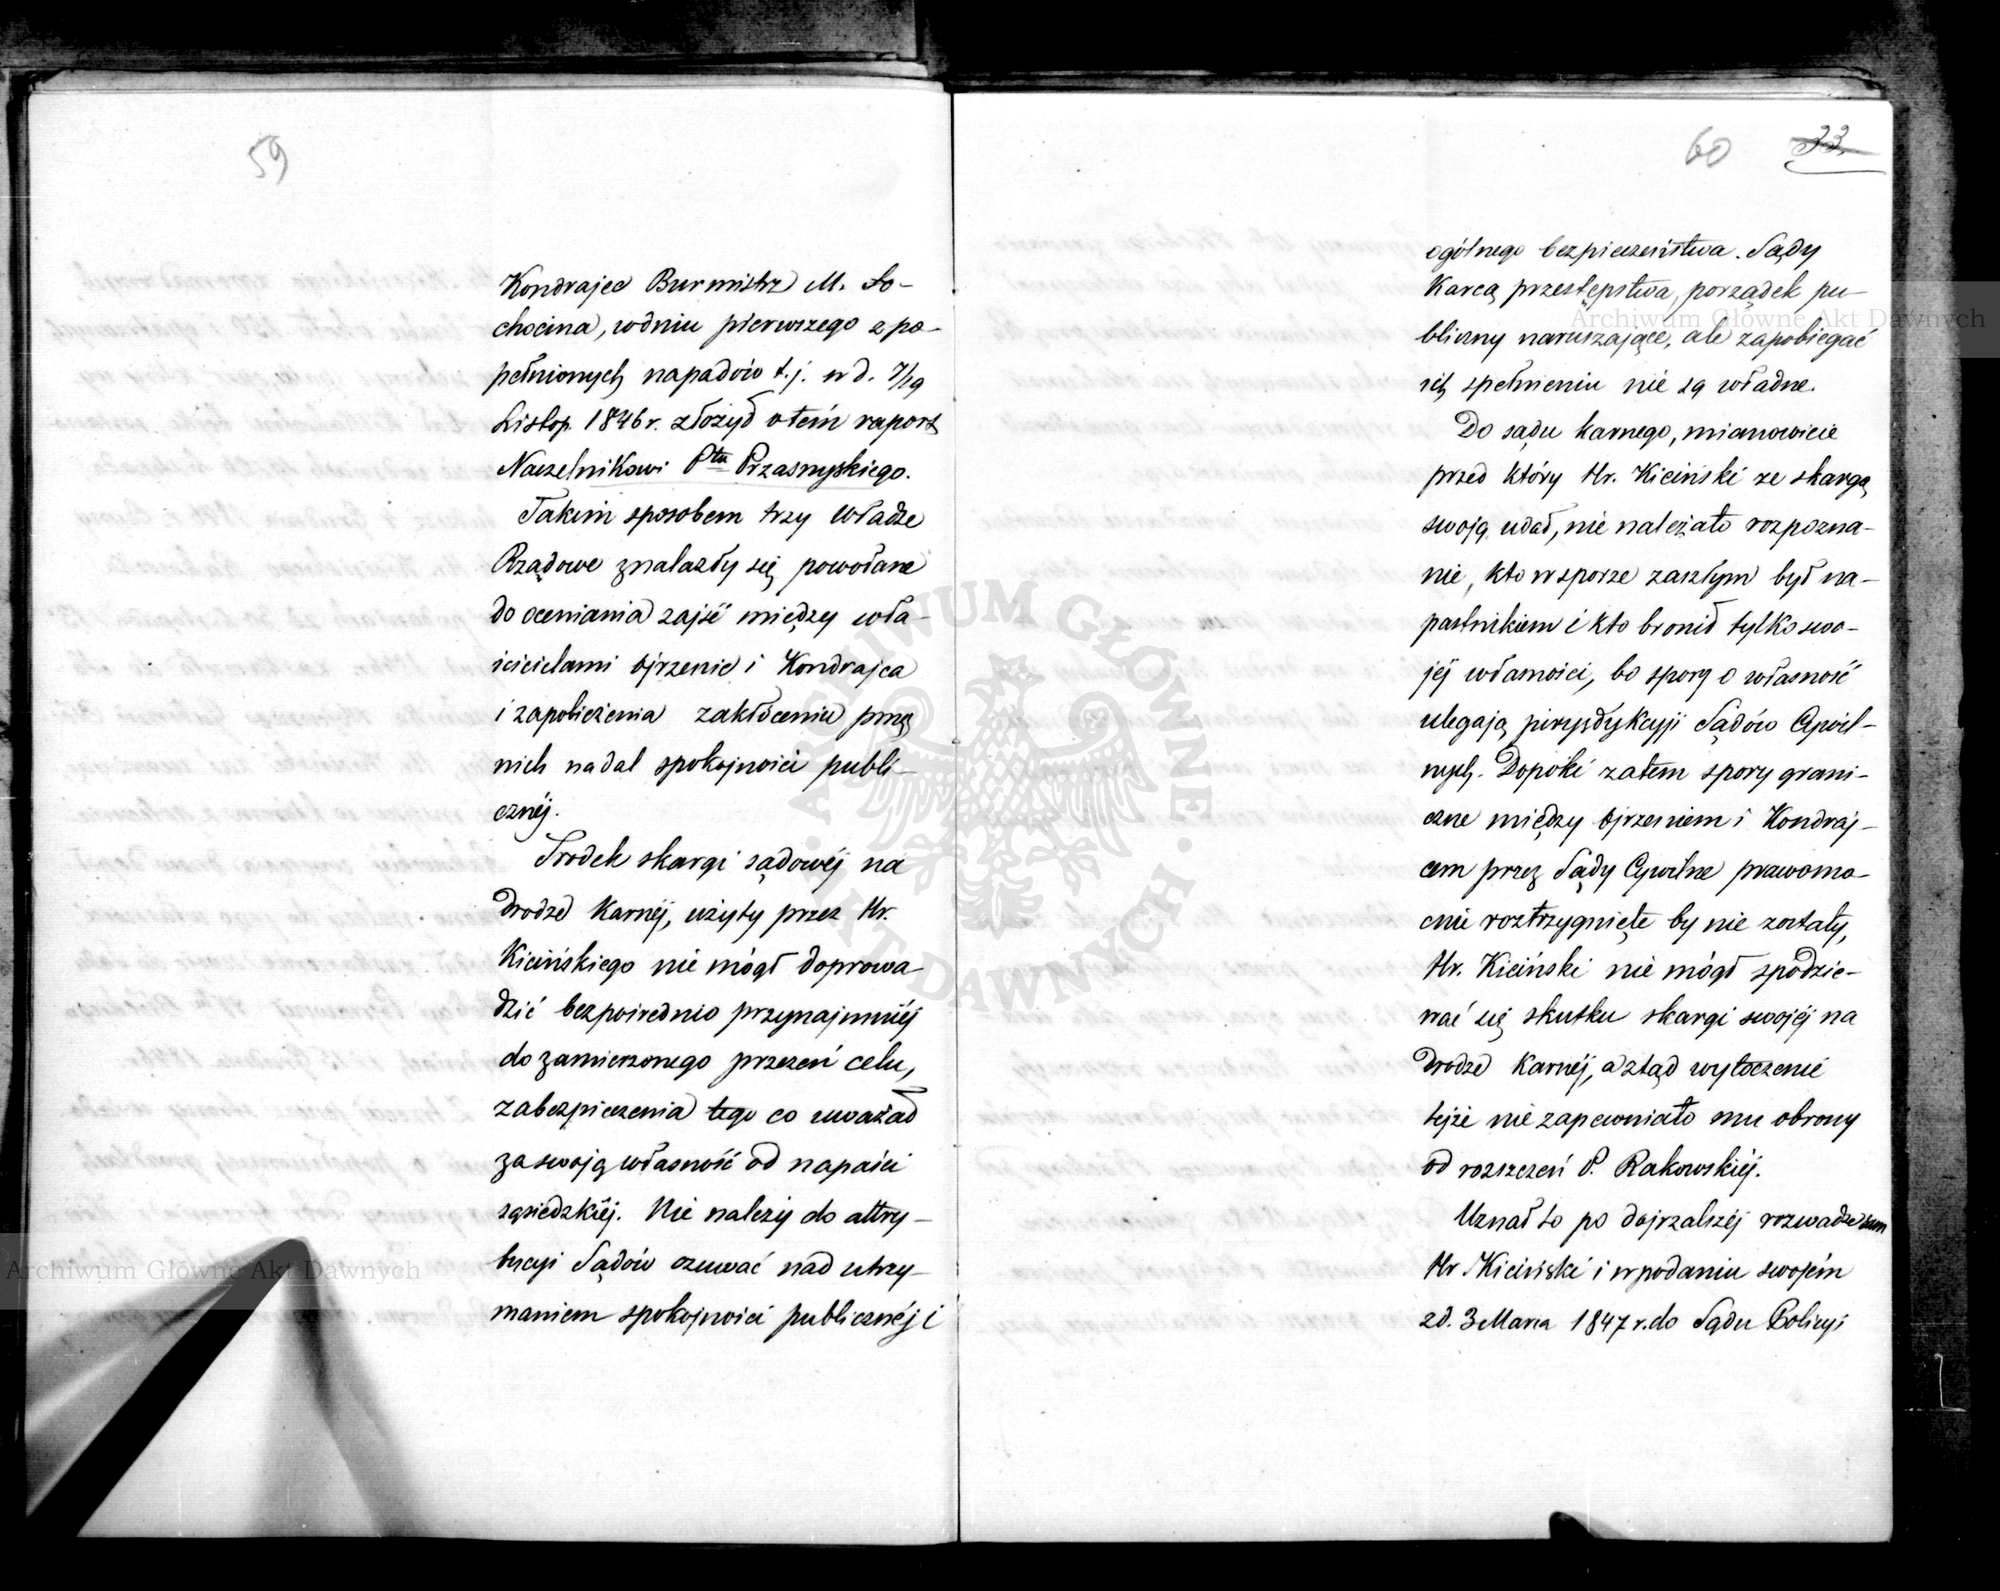 59
Kondrajec Burmistrz M. So-
chocina, w dniu pierwszego z po-
pełnionych napadów t.j. w d. 7/19
Listop. 1846 r. złożył o tém raport
Naczelnikowi Ptu Przasnyskiego.
Takim sposobem trzy władze
Rządowe znalazły się powołane
do oceniania zajść między wła-
ścicielami Ojrzenie i Kondrajca
i zapobieżenia zakłóceniu przez
nich nadal spokojności publi-
cznéj.
Środek skargi sądowéj na
drodze karnéj, użyty przez Hr.
Kicińskiego nie mógł doprowa
dzić bezpośrednio przynajmniéj
do zamierzonego przezeń celu,
zabezpieczenia tego co uważał
za swoją własność od napaści
sąsiedzkiéj. Nie należy do attry-
bucyi Sądów czuwać nad utrzy-
maniem spokojności publicznéj i
60 33.
ogólnego bezpieczeństwa. Sądy
karcą przestępstwa, porządek pu-
bliczny naruszające, ale zapobiegać
ich spełnieniu nie są władne.
Do sądu karnego, mianowicie
przed który Hr. Kiciński ze skargą
swoją udał, nie należało rozpozna-
nie, kto w sporze zaszłym był na-
pastnikiem i kto bronił tylko swo-
jéj własności, bo spory o własność
ulegają juryzdykcyi Sądów Cywil-
nych. Dopóki zatem spory grani-
czne między Ojrzeniem i Kondraj-
cem przez Sądy Cywilne prawomo-
cnie roztrzygnięte by nie zostały,
Hr. Kiciński nie mógł spodzie-
wać się skutku skargi swojéj na
drodze karnéj, a ztąd wytoczenie
tejże nie zapewniało mu obrony
od roszczeń P. Rakowskiéj.
Uznał to po dojrzalszéj rozwadze sam
Hr. Kiciński i w podaniu swojém
z d. 3 Marca 1847 r. do Sądu Policyi
Archiwum Główne Akt Dawnych
Archiwum Główne Akt Dawnych
ARCHIWUM GŁÓWNE AKT DAWNYCH